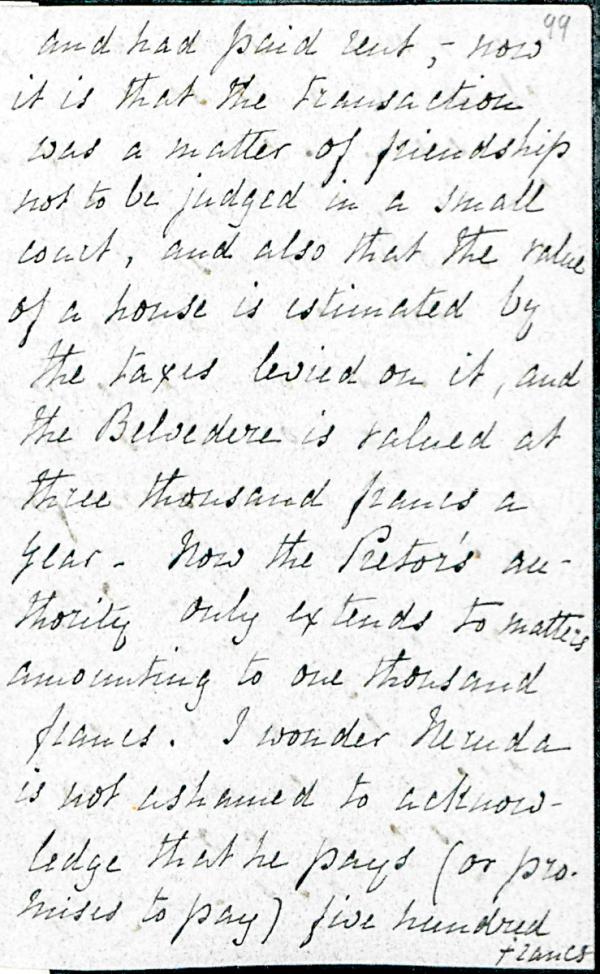 99
and had paid rent, - now
it is that the transaction
was a matter of friendship
not to be judged in a small
court, and also that the value
of a house is estimated by
the taxes levied on it, and
the Belvedere is valued at
three thousand francs a
year - Now the Pretor's au-
thority only extends to matters
amounting to one thousand
francs. I wonder Neruda
is not ashamed to acknow-
ledge that he pays (or pro-
mises to pay) five hundred
francs